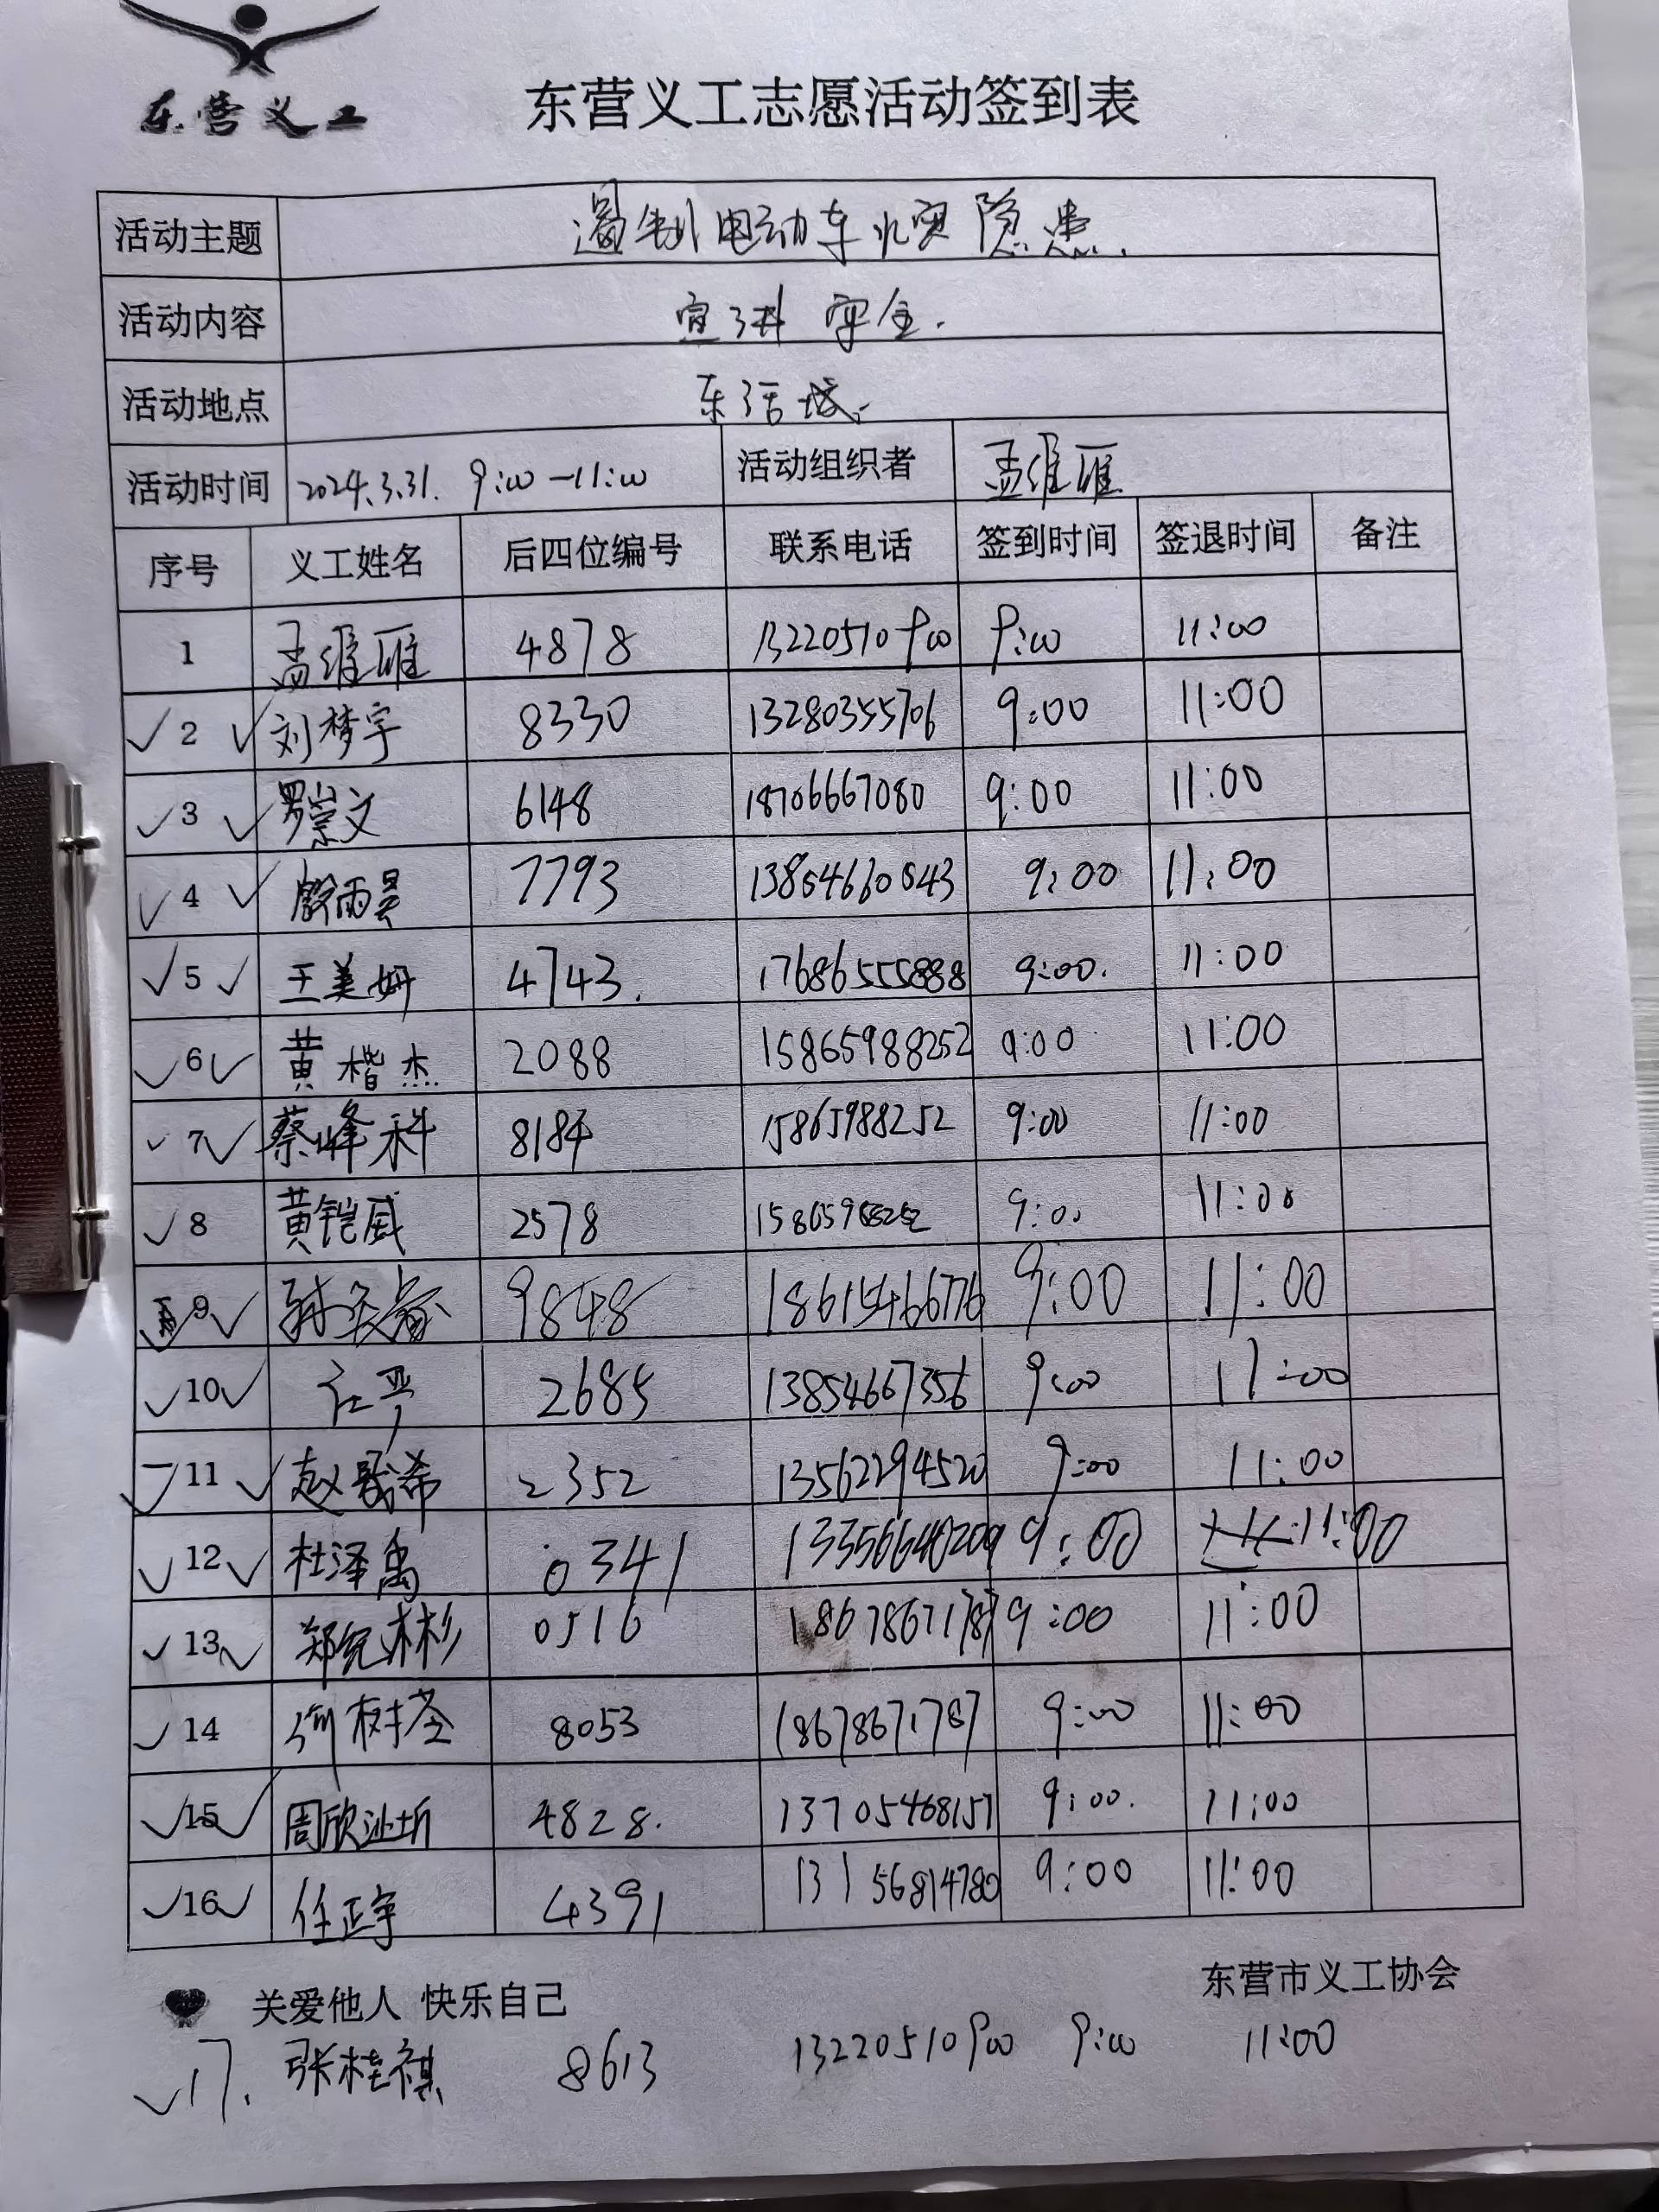 东营义工
东营义工志愿活动签到表
活动主题 遏制电动车火灾隐患.
活动内容 宣讲 安全.
活动地点 东 城.
活动时间 2024.3.31. 9:00—11:00 活动组织者 孟维雁
序号 义工姓名 后四位编号 联系电话 签到时间 签退时间 备注
1 孟维雁 4878 13220510900 9:00 11:00
2 刘梦宇 8330 13280355706 9:00 11:00
3 罗崇文 6148 18706667080 9:00 11:00
4 殷雨昊 7793 13854660543 9:00 11:00
5 王美妍 4743. 17686555888 9:00. 11:00
6 黄楷杰 2088 15865988252 9:00 11:00
7 蔡峰科 8184 15865988252 9:00 11:00
8 黄铠威 2578 15865988252 9:00 11:00
9 9848 18615466776 9:00 11:00
10 2685 13854667356 9:00 11:00
11 赵 希 2352 13562294520 9:00 11:00
12 杜泽禹 0341 13356640209 9:00 11:00
13 郑 彬 0516 18678671787 9:00 11:00
14 树 8053 18678671787 9:00 11:00
15 周欣 4828. 13705468157 9:00. 11:00
16 任正宇 4391 13156814780 9:00 11:00
关爱他人 快乐自己 东营市义工协会
17. 张桂祺 8613 13220510900 9:00 11:00